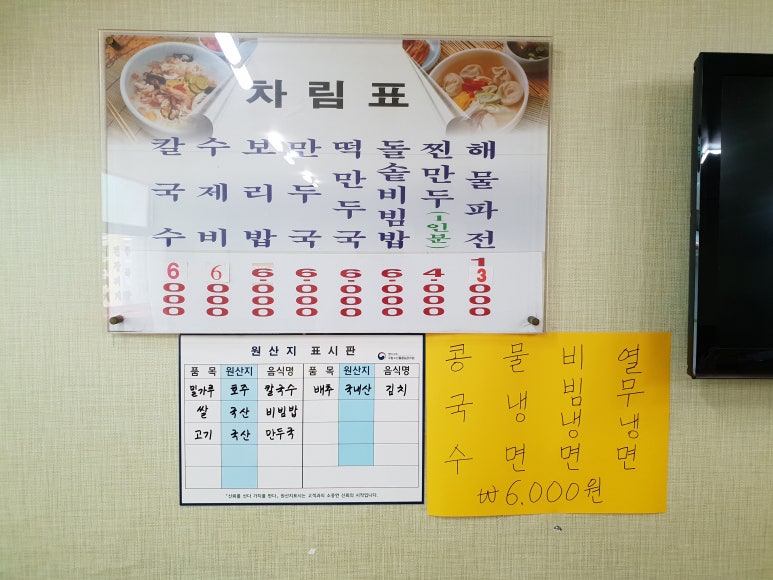 차림표
칼국수 6000
수제비 6000
보리밥 6000
만두국 6000
떡만두국 6000
돌솥비빔밥 6000
찐만두(1인분) 4000
해물파전 13000
원산지 표시판
품 목 원산지 음식명 품 목 원산지 음식명
밀가루 호주 칼국수 배추 국내산 김치
쌀 국산 비빔밥
고기 국산 만두국
"신뢰를 얻다 가치를 얻다, 원산지표시는 고객과의 소중한 신뢰의 시작입니다.
콩국수
물냉면
비빔냉면
열무냉면
₩6.000원